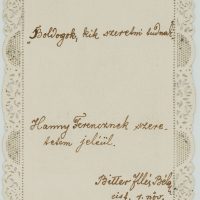 „Boldogok, kik szeretni tudnak"
Hanny Ferencznek szere-
tetem jeléül.
Bitter Illés Béla
cist. r. növ.